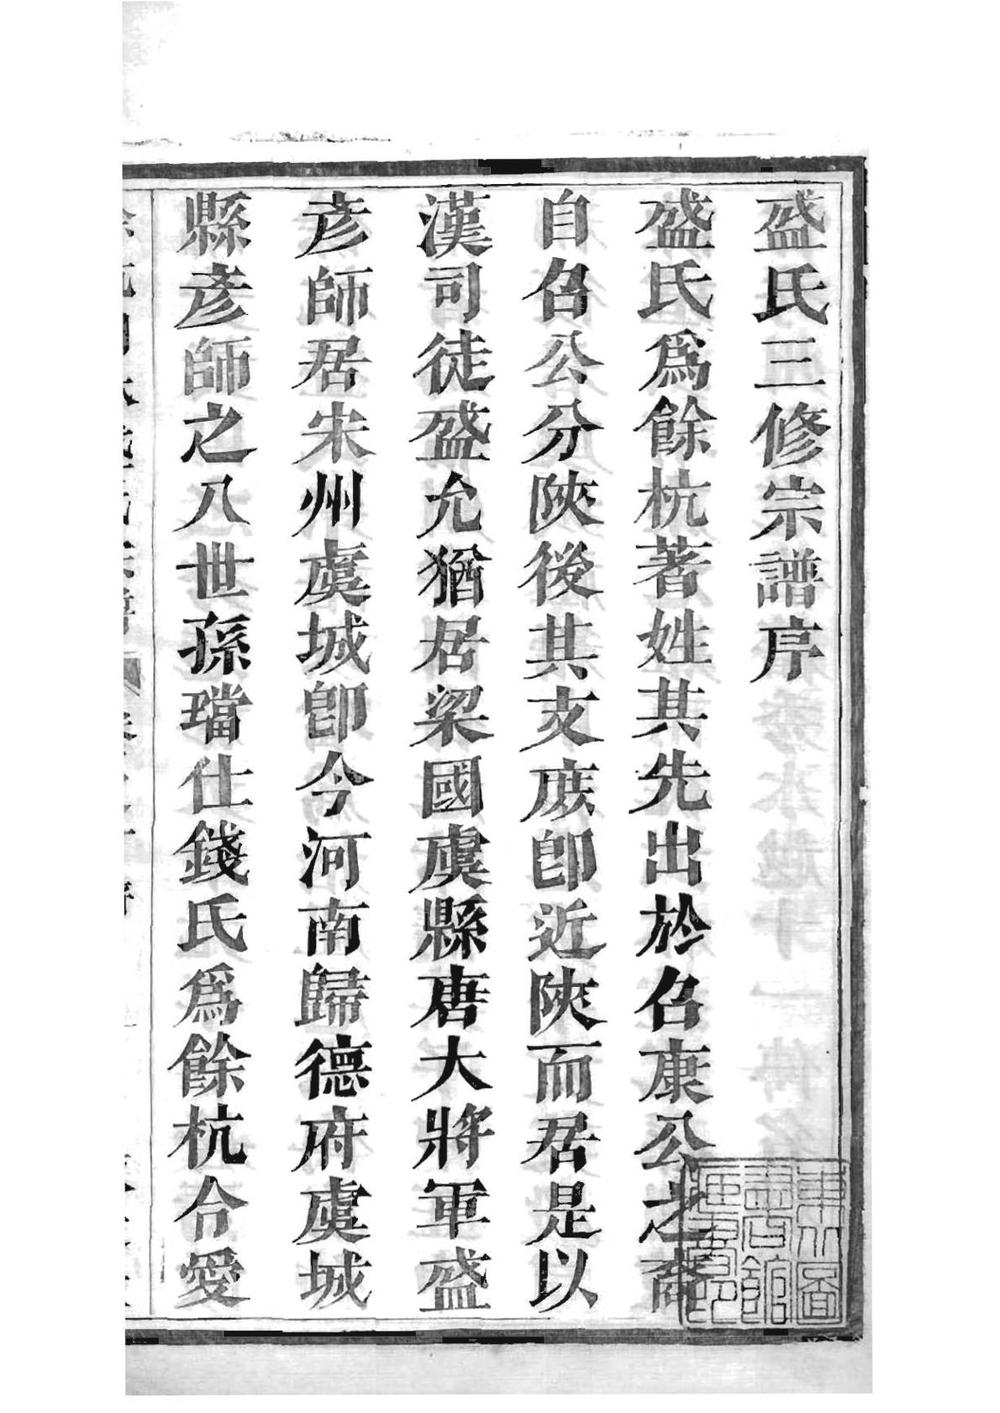 盛氏三修宗譜序
盛氏爲餘杭著姓其先出於召康公之裔
自召公分陝後其支庶卽近陝而居是以
漢司徒盛允猶居梁國虞縣唐大將軍盛
彥師居宋州虞城卽今河南歸德府虞城
縣彥師之八世孫璫仕錢氏爲餘杭令愛